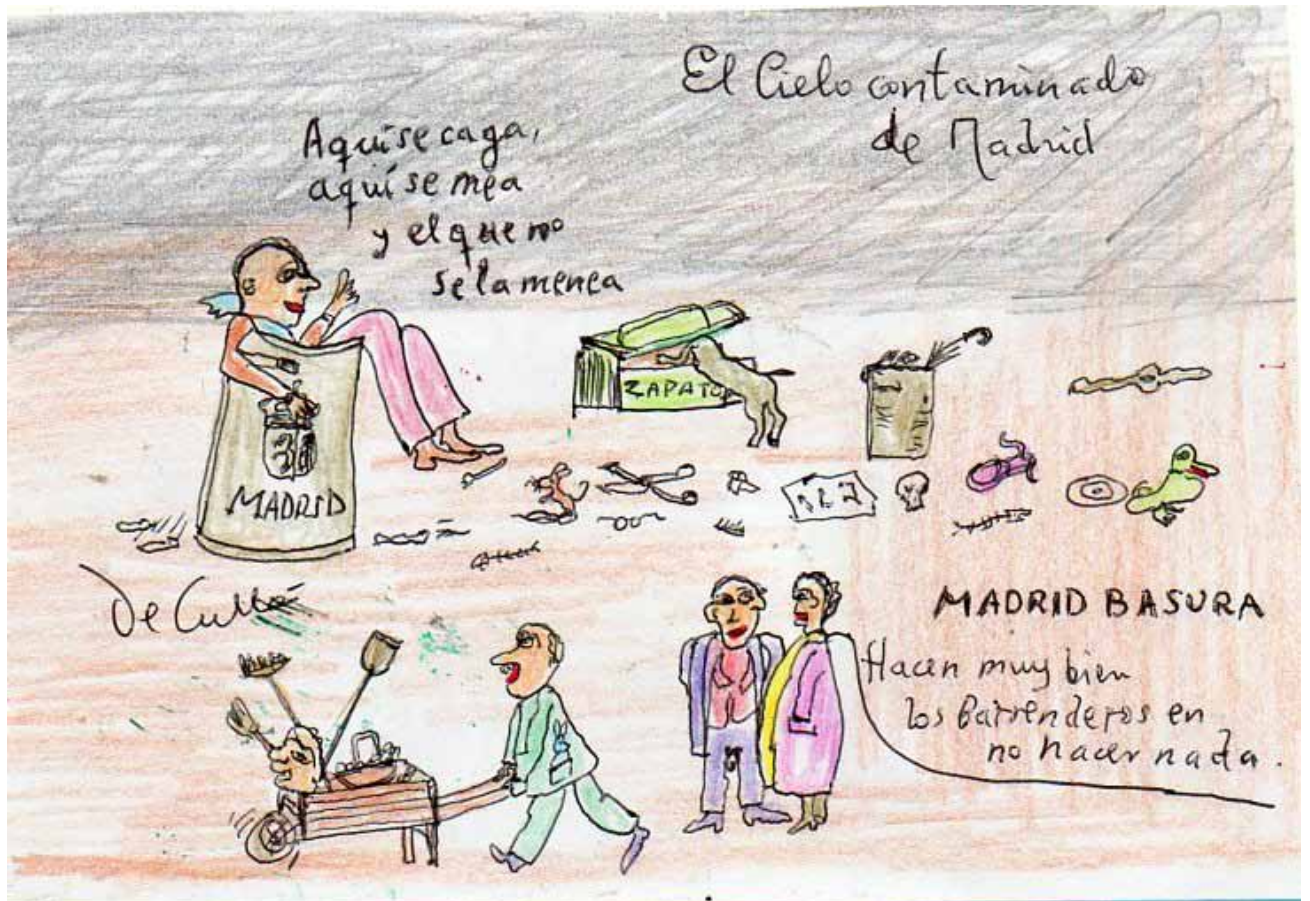 El Cielo contaminado
de Madrid
Aquí se caga,
aquí se mea
y el que no
se la menea
ZAPATO
MADRID
MADRID BASURA
Hacen muy bien
los barrenderos en
no hacer nada.